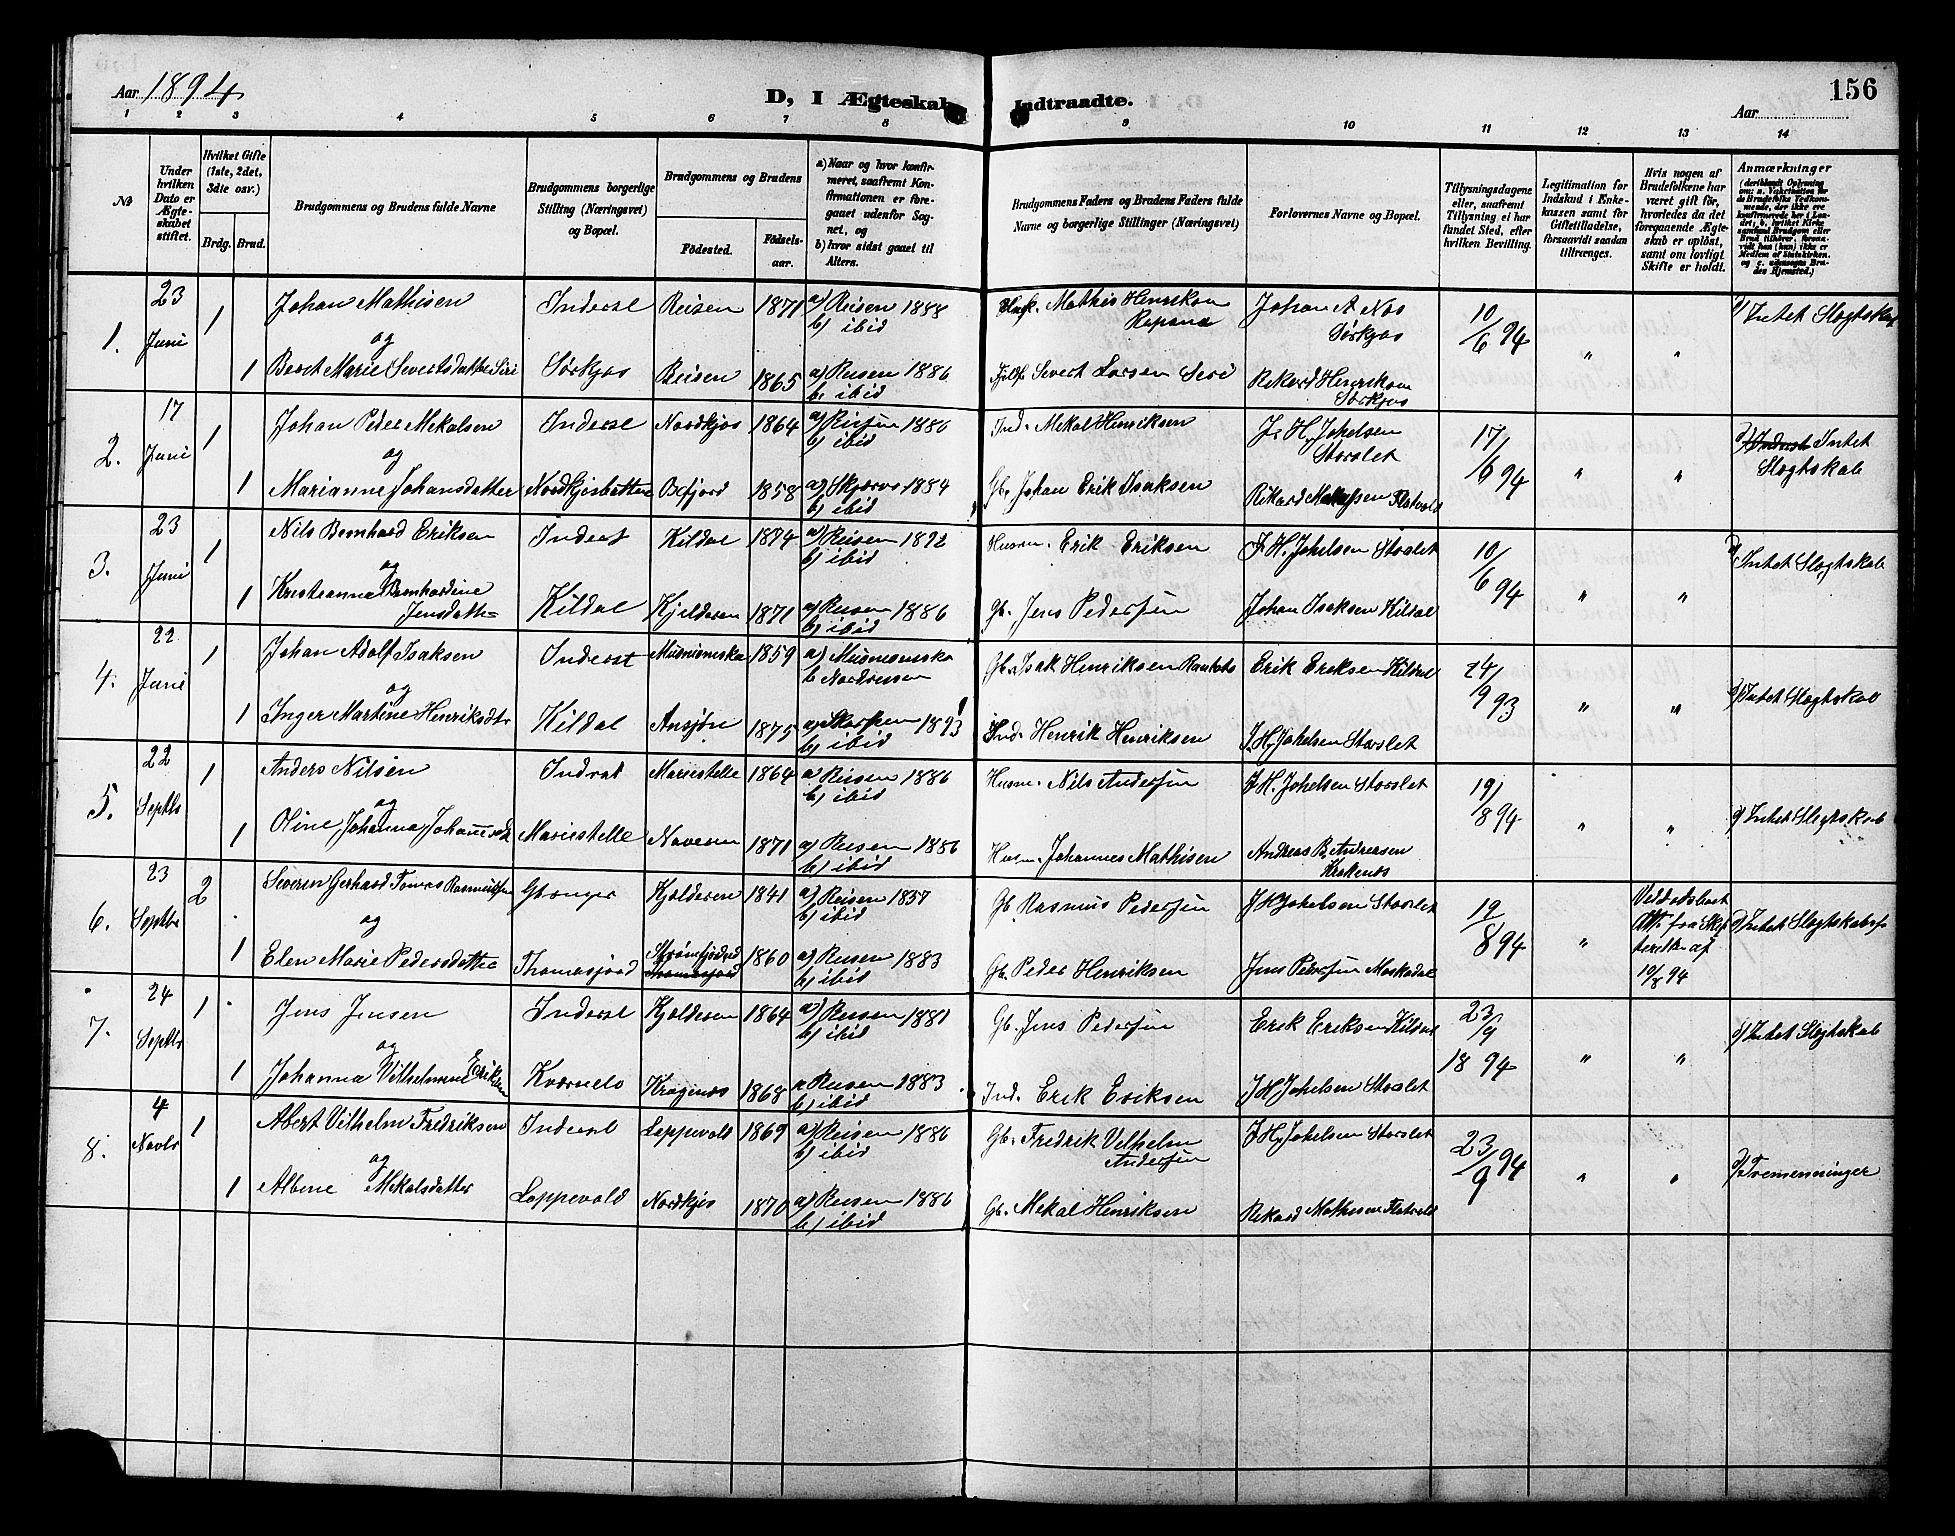 Aar 1894
D, I Ægteskab Indtraadte.
156
Aar
1 2 3 4 5 6 7 8 9 10 11 12 13 14
No
Under hvilken Dato er Ægteskabet stiftet.
Hvilket Gifte (1ste, 2det, 3die osv.)
Brdg. Brud.
Brudgommens og Brudens fulde Navne
Brudgommens borgerlige Stilling (Næringsvei) og Bopæl.
Brudgommens og Brudens
Fødested.
Fødselsaar.
a) Naar og hvor konfirmeret, saafremt Konfirmationen er foregaaet udenfor Sognet, og
b) hvor sidst gaaet til Alters.
Brudgommens Faders og Brudens Faders fulde Navne og borgerlige Stillinger (Næringsvei)
Forlovernes Navne og Bopæl.
Tillysningsdagene eller, saafremt Tillysning ei har fundet Sted, efter hvilken Bevilling.
Legitimation for Indskud i Enkekassen samt for Giftetilladelse, forsaavidt saadan tiltrænges.
Hvis nogen af Brudefolkene har været gift før, hvorledes da det foregaaende Ægteskab er opløst, samt om lovligt Skifte er holdt.
Anmærkninger
1. 23 Juni 1 Johan Mathisen Inderst Reisen 1871 a) Reisen 1888 b) ibid Mathis Henriksen Johan A Nos Sørkjos 10/6 94 " " Intet Slegtskab
og
1 Berit Marie Sivertsdatter Siri Sørkjos Reisen 1865 a) Reisen 1886 b) ibid Sivert Larsen Siri Rikard Henriksen Sørkjos
2. 17 Juni 1 Johan Peder Mekalsen Inderst Nordkjos 1864 a) Reisen 1886 b) ibid Ind. Mekal Henriksen J. H. Johelsen Storslet 17/6 94 " " Intet Slegtskab
og
1 Marianne Johansdatter Nordkjosbotten Oxfjord 1858 a) Skjærvø 1884 b) ibid Gb. Johan Erik Isaksen Rikard Flatvold
3. 23 Juni 1 Nils Bernhard Eriksen Inderst Kildal 1874 a) Reisen 1892 b) ibid Husm. Erik Eriksen J. H. Johelsen Storslet 10/6 94 " " Intet Slegtskab
og
1 Kristianna Bernhardine Jensdatter Kildal Kjelderen 1871 a) Reisen 1886 b) ibid Gb. Jens Pedersen Johan Isaksen Kildal
4. 22 Juni 1 Johan Adolf Isaksen Inderst Muonioniska 1859 a) Muonioniska b Nordreisen Gb. Isak Henriksen Erik Eriksen Kildal 24/9 93 " " Intet Slegtskab
og
1 Inger Martine Henriksdtr Kildal Ansjøn 1875 a) 1893 b) ibid Ind. Henrik Henriksen J. H. Johelsen Storslet
5. 22 Septbr 1 Anders Nilsen Indrst Mariestelle 1864 a Reisen 1886 b) ibid Husm. Nils Andersen J. H. Johelsen Storslet 19/8 94 " " Intet Slegtskab
og
1 Oline Johanna Mariestelle Naveren 1871 a) Reisen 1886 b) ibid Husm. Johannes Mathisen Andreas B. Andreasen
6. 23 Septbr 2 Severin Gerhard Tomas Rasmussen Gbruger Kjelderen 1841 a) Reisen 1857 b) ibid Gb. Rasmus Pedersen J. H. Johelsen Storslet 19/8 94 " Ved dødsbevis Att. fra Skifteretten af 10/8 94 Intet Slegtskab
og
1 Elen Marie Pedersdatter Thomasjord Strømfjordnes Thomasjord 1860 a) Reisen 1883 b) ibid Gb. Peder Henriksen Jens Pedersen Moskodal
7. 24 Septbr 1 Jens Jensen Inderst Kjelderen 1864 a) Reisen 1881 b) ibid Gb. Jens Pedersen Erik Eriksen Kildal 23/9 18 94 " " Intet Slegtskab
og
1 Johanna Vilhelmine Kværnelv Kragenes 1868 a Reisen 1883 b) ibid Ind. Erik Eriksen J. H. Johelsen Storslet
8. 4 Novbr 1 Albert Vilhelm Fredriksen Inderst Loppevold 1869 a) Reisen 1886 b) ibid Gb. Fredrik Vilhelm Andersen J. H. Johelsen Storslet 23/9 94 " " Tremenninger
og
1 Albine Mekalsdatter Loppevold Nordkjos 1870 a) Reisen 1886 b) ibid Gb. Mekal Henriksen Rikard Mathisen Flatvold